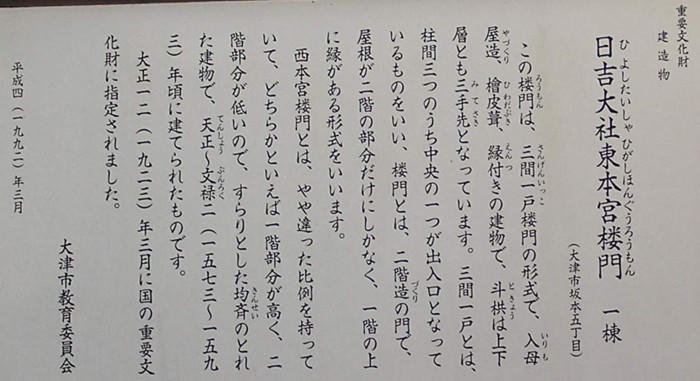 重要文化財
建造物
日吉大社東本宮楼門 一棟
ひよしたいしゃひがしほんぐうろうもん
(大津市坂本五丁目)
この楼門は、三間一戸楼門の形式で、入母
ろうもん さんげんいっこ いりも
屋造、檜皮葺、縁付きの建物で、斗栱は上下
やづくり ひわだぶき えんつ ときょう
層とも三手先となっています。三間一戸とは、
みてさき
柱間三つのうち中央の一つが出入口となって
いるものをいい、楼門とは、二階造の門で、
づくり
屋根が二階の部分だけにしかなく、一階の上
に縁がある形式をいいます。
西本宮楼門とは、やや違った比例を持って
いて、どちらかといえば一階部分が高く、二
階部分が低いので、すらりとした均斉のとれ
きんせい
た建物で、天正〜文禄二(一五七三〜一五九
てんしょう ぶんろく
三)年頃に建てられたものです。
大正一二(一九二三)年三月に国の重要文
化財に指定されました。
平成四(一九九二)年三月
大津市教育委員会